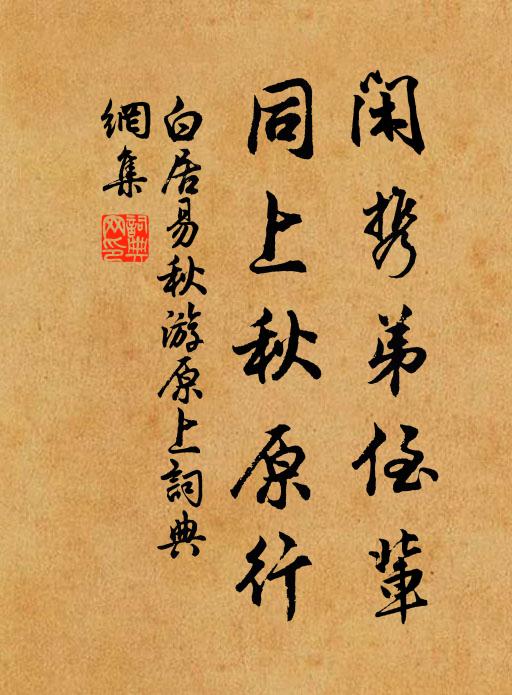 闲携弟侄辈
同上秋原行
白居易秋游原上詞典
網集
詞典網印